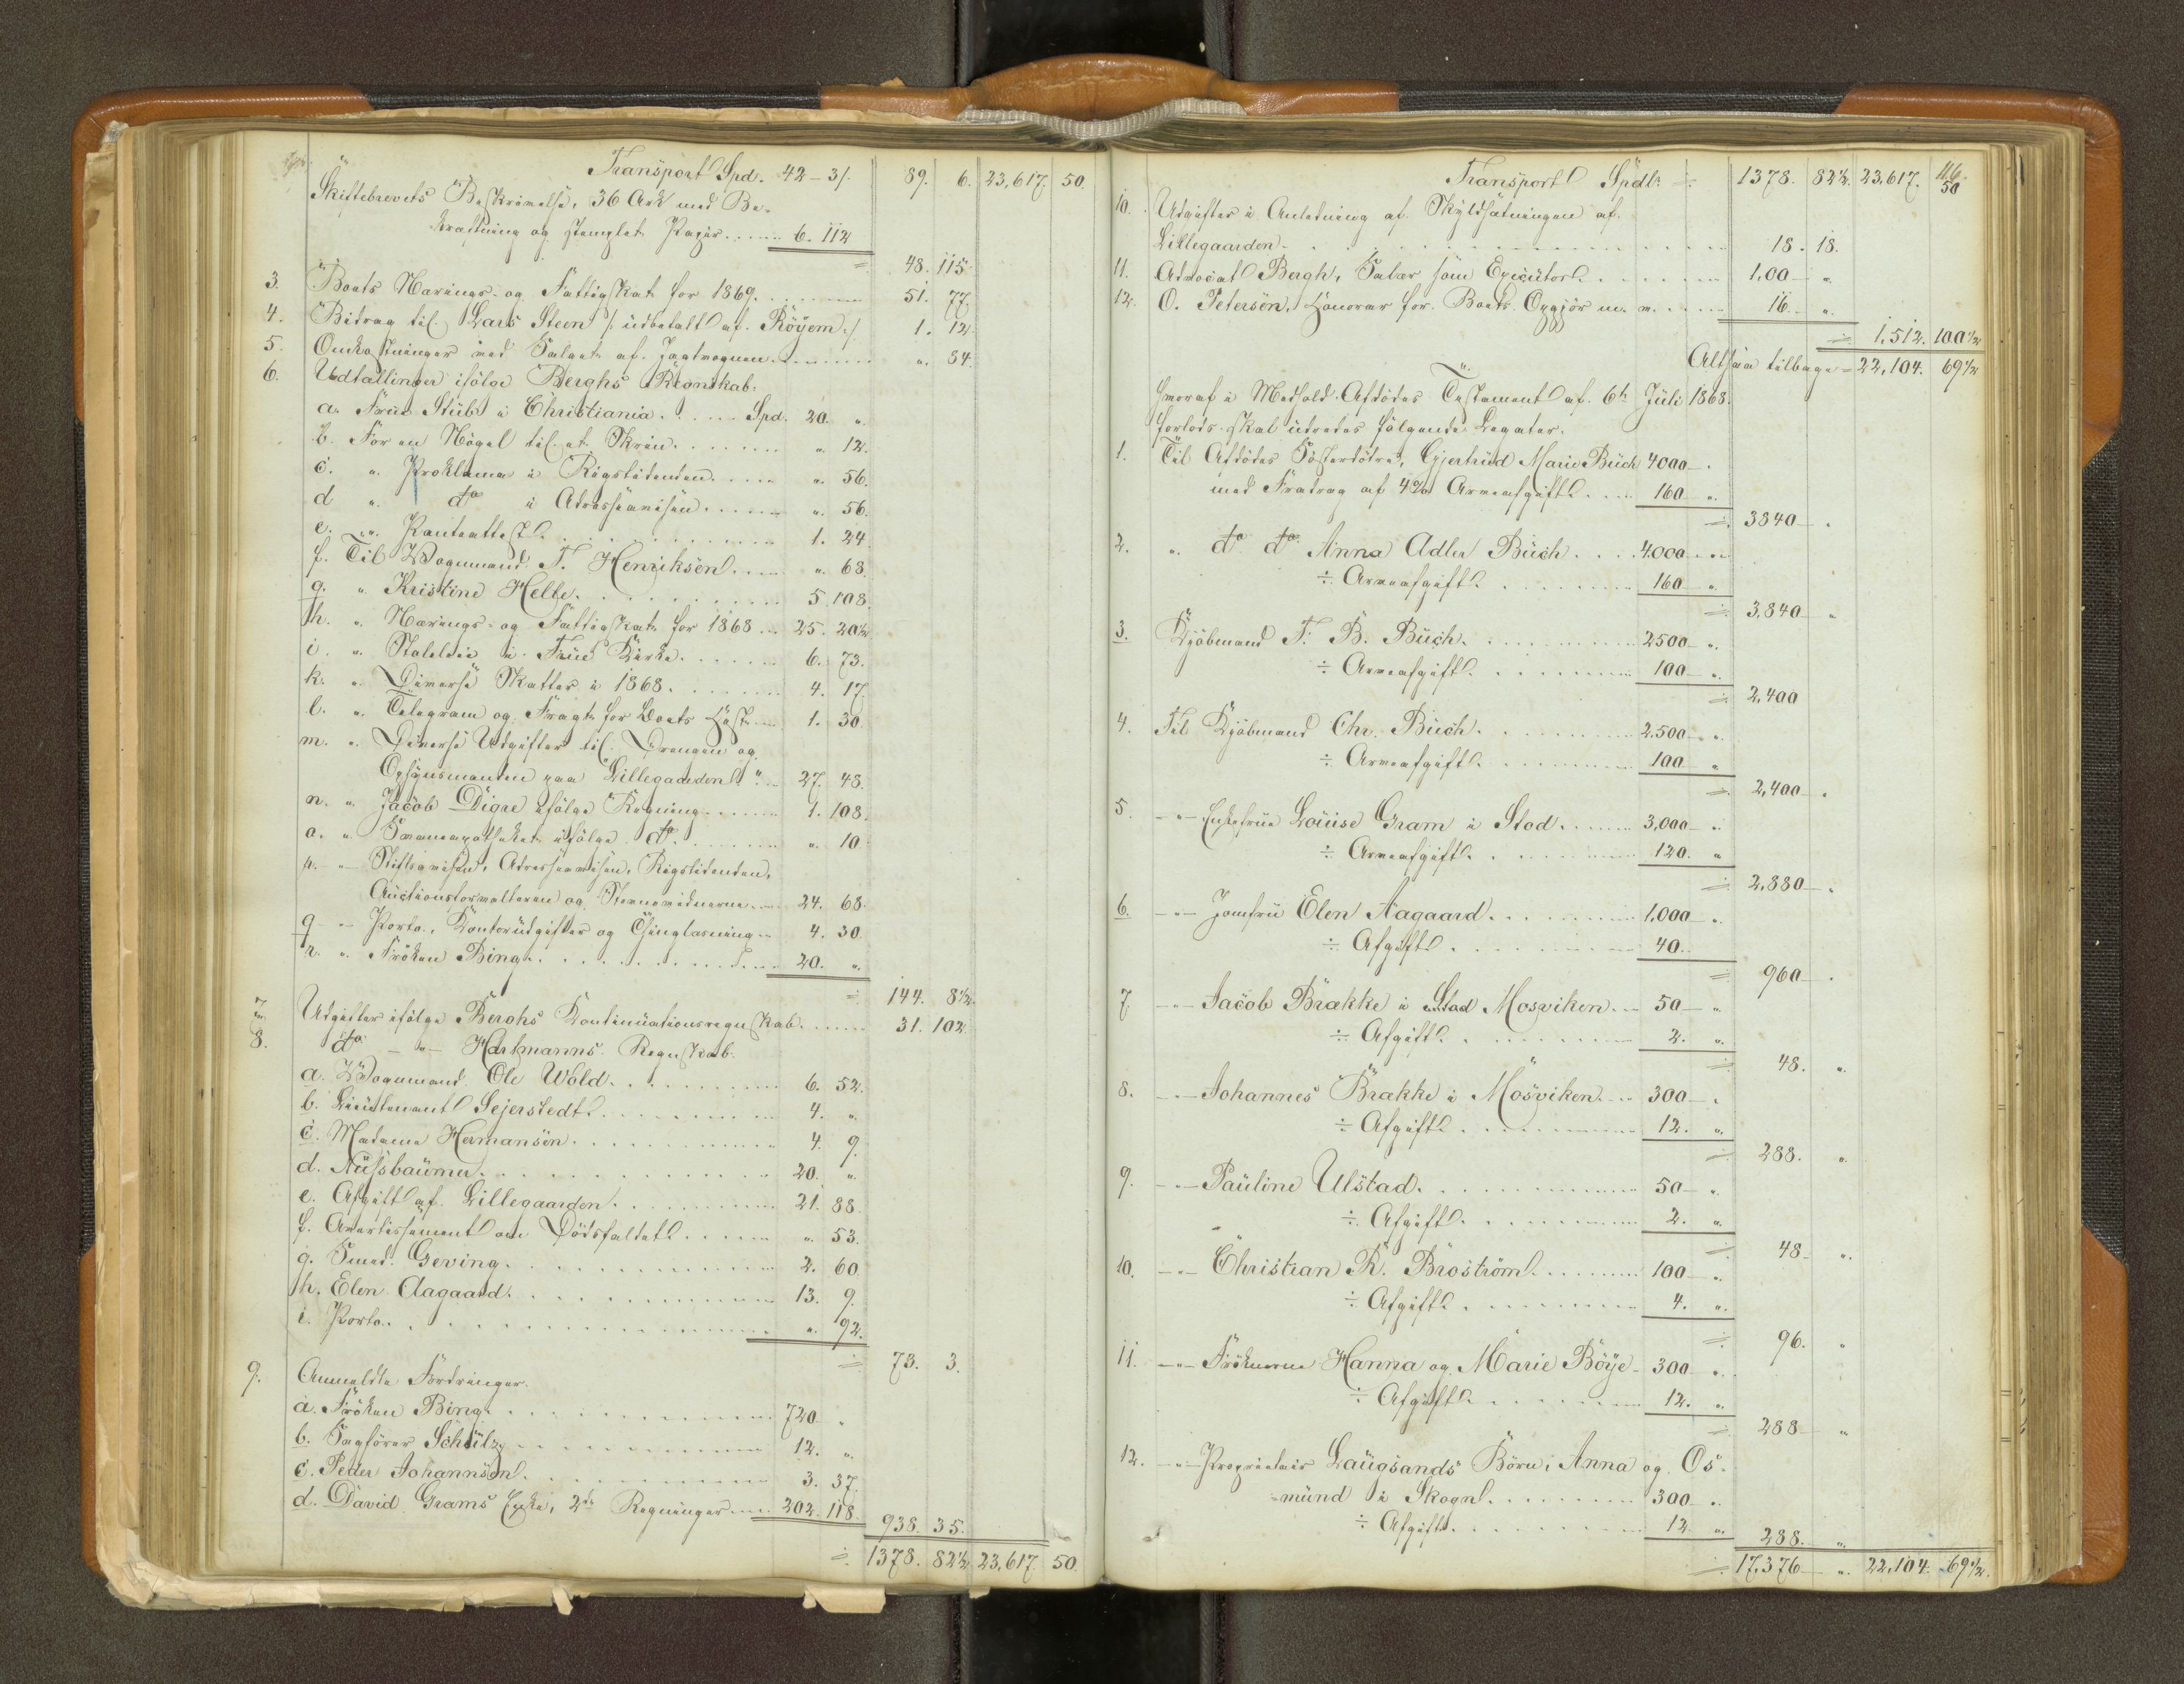 Transport Spd. 42-3/. 89. 6. 23,617. 50.
Skiftebrevets Beskrivelse, 36 Ark med Be-
kræftning og stemplet Papir . . . 6. 112
= 48. 115.
3. Boets Nærings- og Fattigskat for 1869 . . . 51. 77.
4. Bidrag til Lars Steen /: udbetalt af Röyem :/ 1. 12.
5. Omkostninger ved Salget af Jagtvognen . . . ". 84.
6. Udtællinger ifölge Berghs Regnskab:
a. Frue Stub i Christiania . . . Spd. 20. ".
b. For en Nögel til et Skrin . . . ". 12.
c. ". Proklama i Rigstidenden . . . ". 56.
d ". do i Adresseavisen . . . ". 56.
e. ". Panteattest . . . 1. 24.
f. Til Vognmand T. Henriksen . . . ". 68.
g. " Kristine Helle . . . 5. 108.
h. " Nærings- og Fattigskat for 1868 . . . 25. 20½.
i. " Stoleleie i Frue Kirke . . . 6. 73.
k. " Diverse Skatter i 1868 . . . 4. 17.
l. " Telegram og Fragt for Boets Hest . . . 1. 30.
m. " Diverse Udgifter til Drengen og
Opsynsmanden paa Lillegaarden . . . 27. 48.
n. " Jacob Digre ifölge Regning . . . 1. 108.
o. " Svaneapotheket ifölge do. . . . ". 10.
p. " Stiftsavisen, Adresseavisen, Rigstidenden,
Auctionsforvalteren og Stevnevidnerne . . . 24. 68.
q " Porto, Kontorudgifter og Thinglæsning . . . 4. 30.
r. " Fröken Bing . . . 20. ".
= 144. 8½.
7. Udgifter ifölge Berghs Kontinuationsregnskab . . . 31. 102.
8. do - " - Hartmanns Regnskab.
a. Vognmand Ole Wold . . . 6. 52.
b. Lieutenant Sejerstedt . . . 4. ".
c. Madame Hermansen . . . 4. 9.
d. Nussbaumer . . . 20. ".
e. Afgift af Lillegaarden . . . 21. 88.
f. Avertissement om Dödsfaldet . . . ". 53.
g. Smed Geving . . . 2. 60
h. Elen Aagaard . . . 13. 9.
i. Porto . . . ". 92.
= 73. 3.
9. Anmeldte Fordringer.
a. Fröken Bing . . . 720 ".
b. Sagförer Schulz . . . 12. ".
c. Peder Johannsen . . . 3. 37.
d. David Grams Enke, 2de Regninger . . . 202. 118.
938. 35.
= 1378. 82½. 23,617. 50.
116.
Transport Spdlr = 1378. 82½. 23,617. 50
10. Udgifter i Anledning af Skyldsætningen af
Lillegaarden . . . 18. 18.
11. Advocat Bergh, Salær som Executor . . . 1,00- ".
12. O. Petersen, Honorar for Boets Opgjör m. m. . . . 16. ".
= 1,512. 100½
Altsaa tilbage = 22,104. 69½
hvoraf i Medhold Afdödes Testament af 6te Juli 1868.
forlods skal udredes fölgende Legater.
1. Til Afdödes Sösterdötre, Gjertrud Marie Buch 4000- .
med Fradrag af 4% Arveafgift . . . 160 ".
= 3840- .
2. " do do Anna Adler Buch . . . 4.000- ".
÷ Arveafgift . . . 160 ".
= 3,840 "
3. Kjöbmand F. B. Buch . . . 2500 ".
÷ Arveafgift . . . 100 ".
= 2,400
4. Til Kjöbmand Chr. Buch . . . 2.500- ".
÷ Arveafgift . . . 100 ".
= 2,400- .
5. -"- Enkefrue Louise Gram i Stod . . . 3,000- ".
÷ Arveafgift . . . 120. "
= 2,880- .
6. -"- Jomfru Elen Aagaard . . . 1,000- ".
÷ Afgift . . . 40.
= 960- .
7. -"- Jacob Brække i Mosviken . . . 50- ".
÷ Afgift . . . 2. ".
= 48. ".
8. -"- Johannes Brække i Mosviken . . . 300- .
÷ Afgift . . . 12. ".
= 288. ".
9. -"- Pauline Ulstad . . . 50- ".
÷ Afgift . . . 2. "
= 48- ".
10. -"- Christian R. Broström . . . 100- ".
÷ Afgift . . . 4. ".
= 96. "
11. -"- Fröknerne Hanna og Marie Böye - 300 ".
÷ Afgift . . . 12. "
= 288 "
12. -"- Proprietair Laugsands Börn, Anna og Os-
mund i Skogn . . . 300 ".
÷ Afgift . . . 12 ".
288. ".
= 17,376- ". 22,104. 69½.